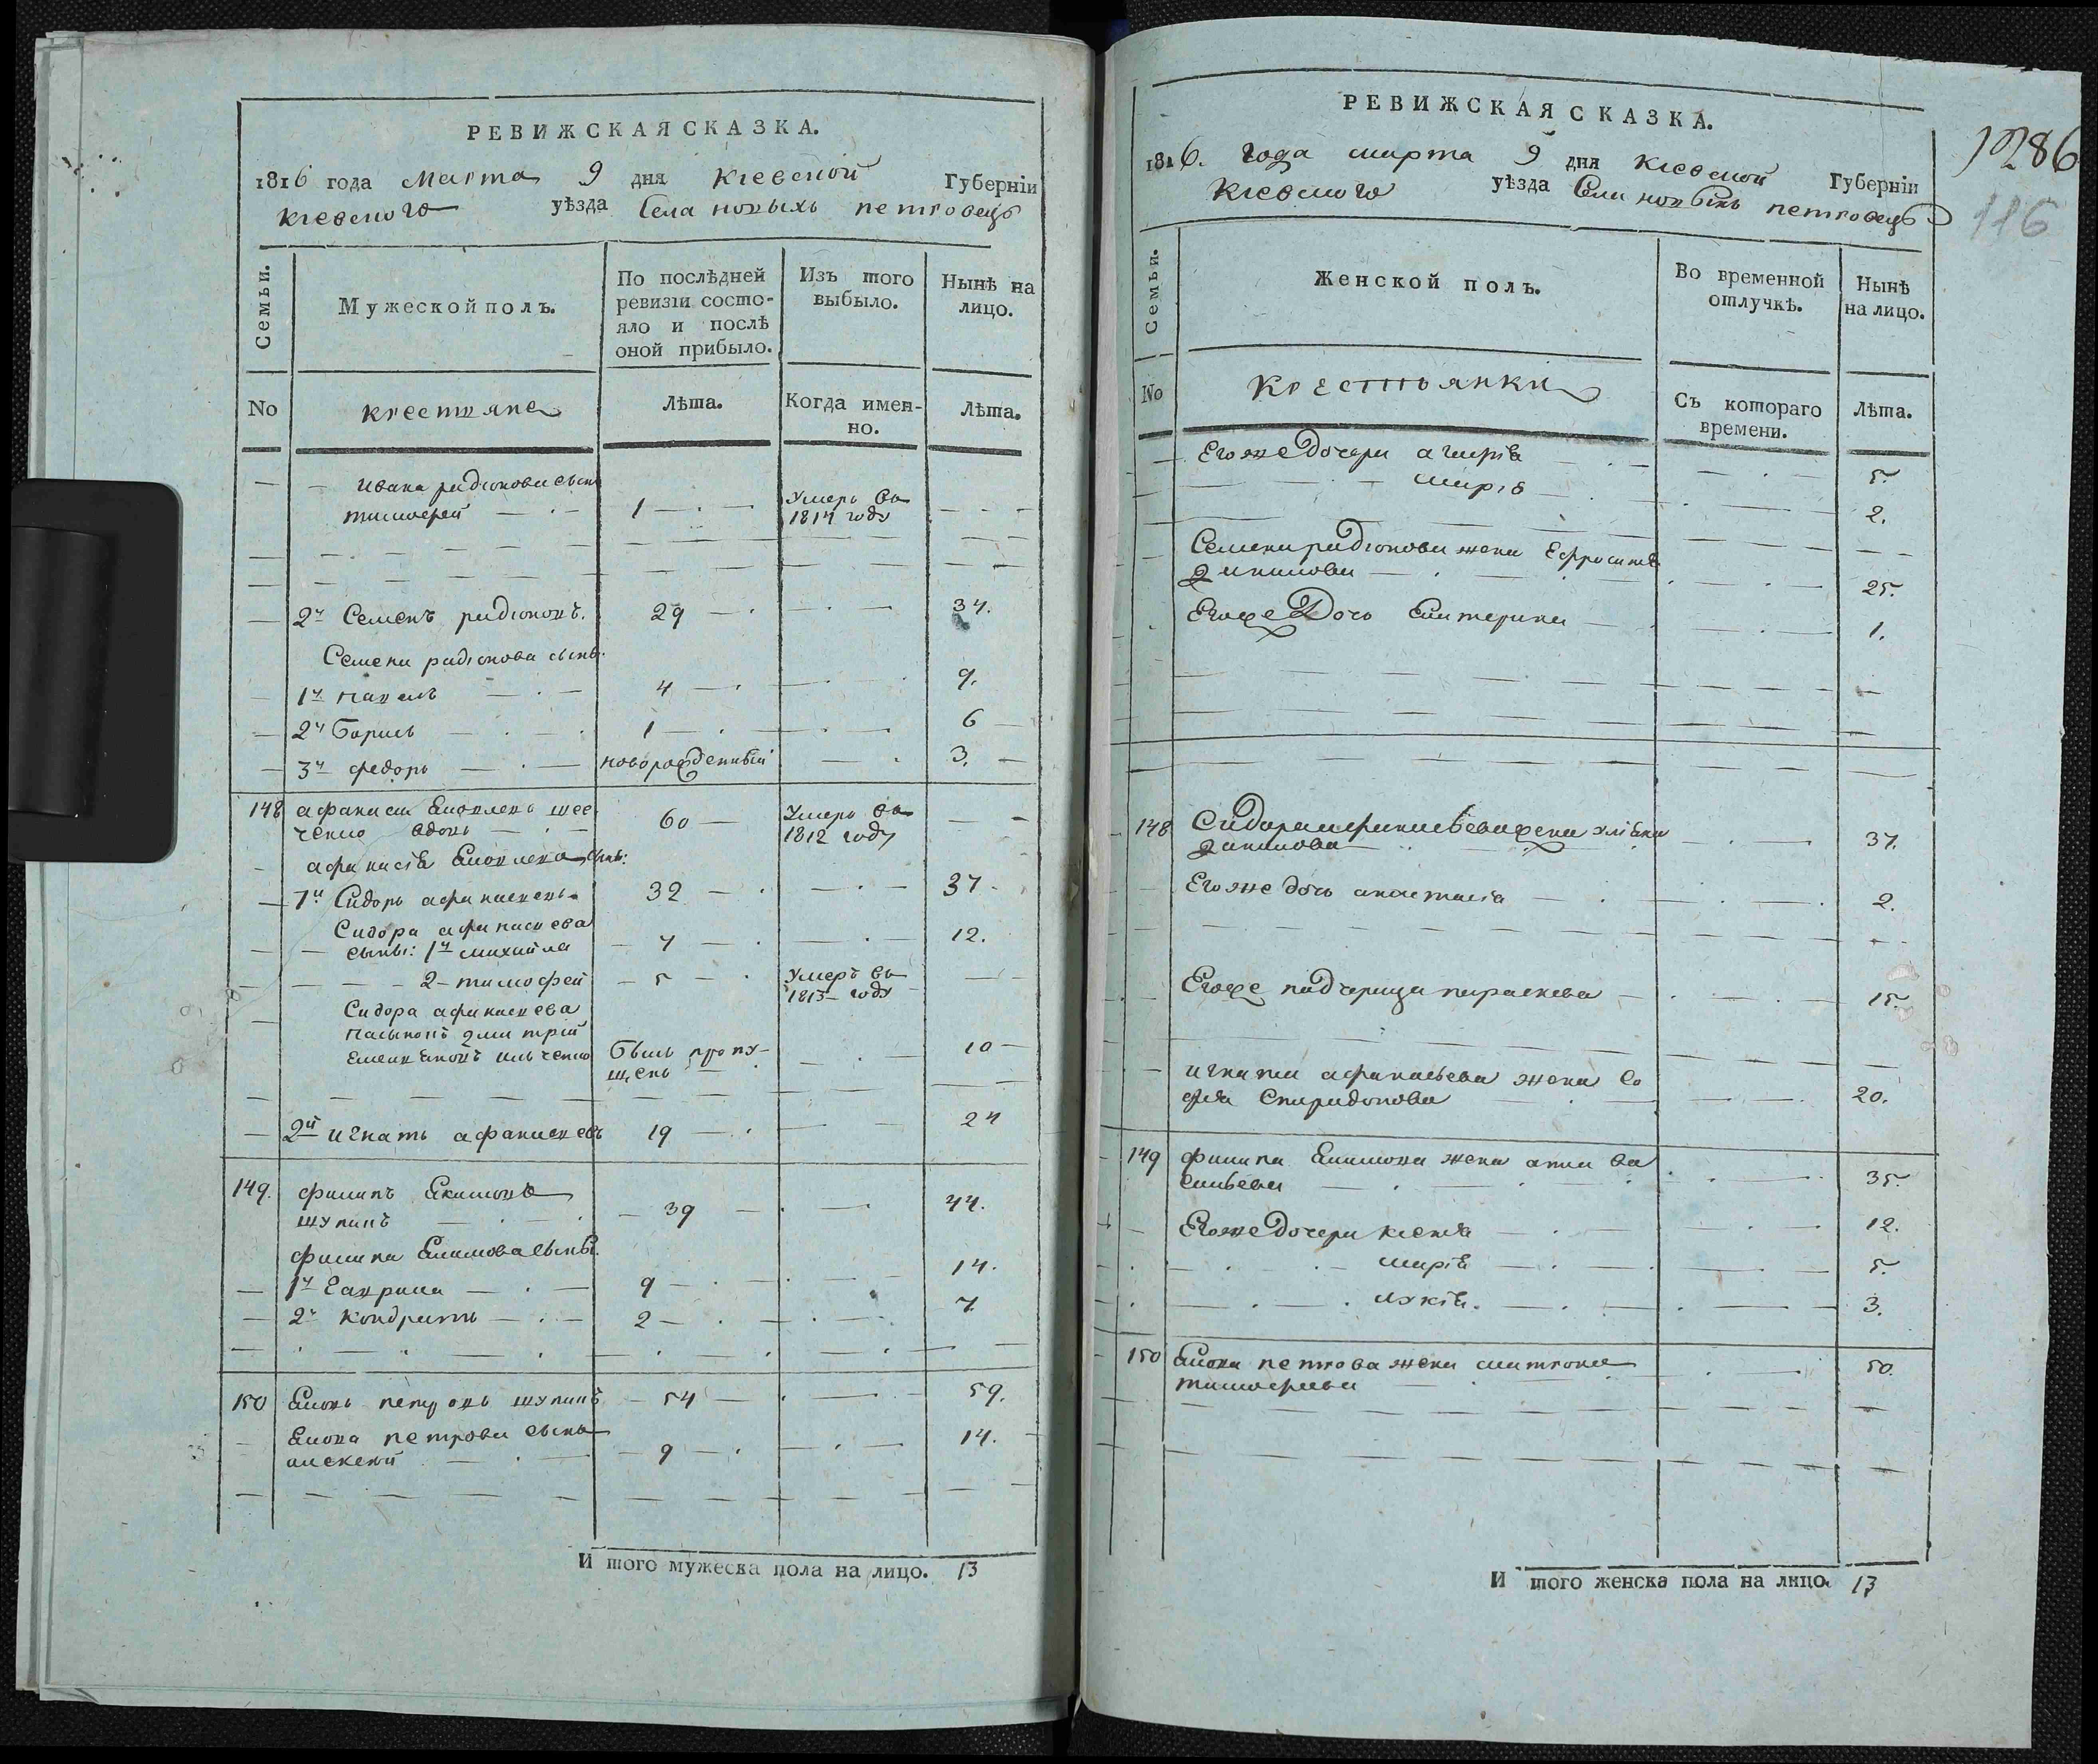 РЕВИЖСКАЯ СКАЗКА.
1816 года Марта 9 дня Кіевской Губерніи
Кіевского уѣзда Села новыхъ петровецъ
Семьи.
Мужеской полъ.
По послѣдней
ревизіи состо-
яло и послѣ
оной прибыло.
Изъ того
выбыло.
Нынѣ на
лицо.
No
крестяне
Лѣта.
Когда имен-
но.
Лѣта.
Ивана радіонова сын
тимофей 1 Умеръ въ
1814 году
2й Семенъ радіоновъ. 29 34.
Семена радіонова сыны:
1й павелъ 4 9.
2й Борисъ 1 6
3й федоръ новорожденный 3.
148 афанасій Яковлевъ шев
ченко вдовъ 60 Умеръ въ
1812 году
афанасія Яковлева сыны:
1й Сидоръ афанасьевъ 32 37.
Сидора афанасьева
сыны: 1й михайла 7 12.
2 тимофей 5 Умеръ въ
1813 году
Сидора афанасьева
пасынокъ дмитрій
ильченко Былъ пропу-
щенъ 10
2й игнатъ афанасьевъ 19 24
149. филипъ Екимовъ
жупанъ 39 44.
филипа Екимова сыны.
1й Гаврила 9 14.
2й Кондратъ 2 7.
150 Яковъ петровъ жупанъ 54 59.
Якова петрова сынъ
алексей 9 14.
И того мужеска пола на лицо. 13
РЕВИЖСКАЯ СКАЗКА.
1816. года марта 9 дня Кіевской Губерніи
Кіевского уѣзда Села новыхъ петровецъ
286
116
Семьи.
Женской полъ.
Во временной
отлучкѣ.
Нынѣ
на лицо.
No
Крестьянки
Съ котораго
времени.
Лѣта.
Егоже дочери агафія 5.
марія 2.
Семена радіонова жена Ефросинія
данилова 25.
Егоже Дочь Екатерина 1.
148 Сидора афанасьева жена уліяна
данилова 37.
Егоже дочь анастасія 2.
Егоже падчерица параскева 15.
игната афанасьева жена Со
фія Спиридонова 20.
149 филипа Екимова жена анна ва
сильева 35.
Егоже Дочери ксенія 12.
марія 5.
лукія. 3.
150 Якова петрова жена матрона
тимофеева 50.
И того женска пола на лицо. 13